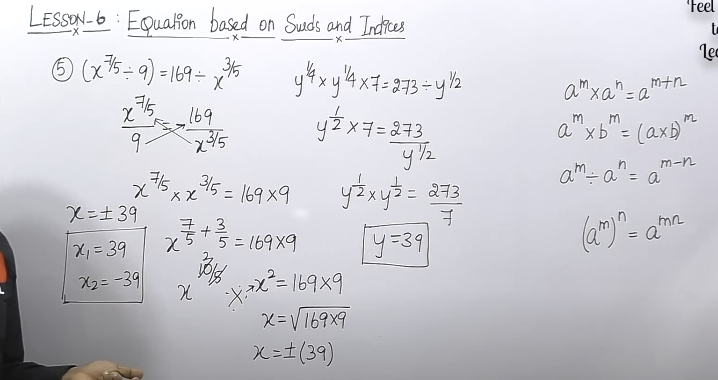 LESSON-6 : Equation based on Surds and Indices
Feel
to
Lea
⑤ (x^7/5 ÷ 9) = 169 ÷ x^3/5
x^7/5 / 9 = 169 / x^3/5
x^7/5 × x^3/5 = 169×9
x^(7/5 + 3/5) = 169×9
x^10/5 2 ∴ x² = 169×9
x = √169×9
x = ±(39)
x = ±39
x₁ = 39
x₂ = -39
y^1/4 × y^1/4 × 7 = 273 ÷ y^1/2
y^1/2 × 7 = 273 / y^1/2
y^1/2 × y^1/2 = 273 / 7
y = 39
a^m × a^n = a^m+n
a^m × b^m = (a×b)^m
a^m ÷ a^n = a^m-n
(a^m)^n = a^mn